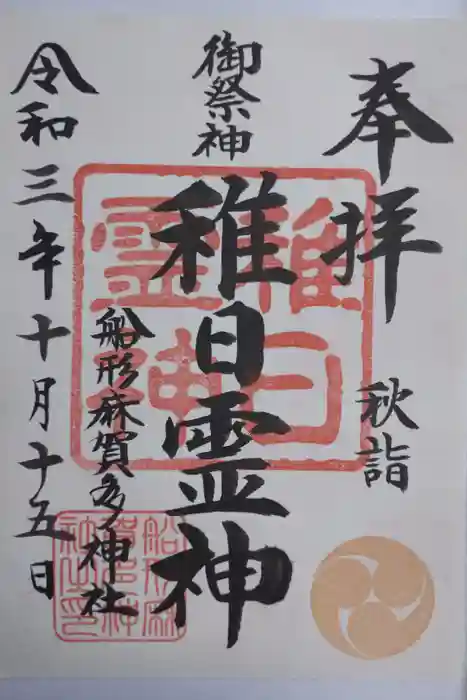 奉拝
秋詣
御祭神
稚日霊神
稚日
霊神
船形麻賀多神社
令和三年十月十五日